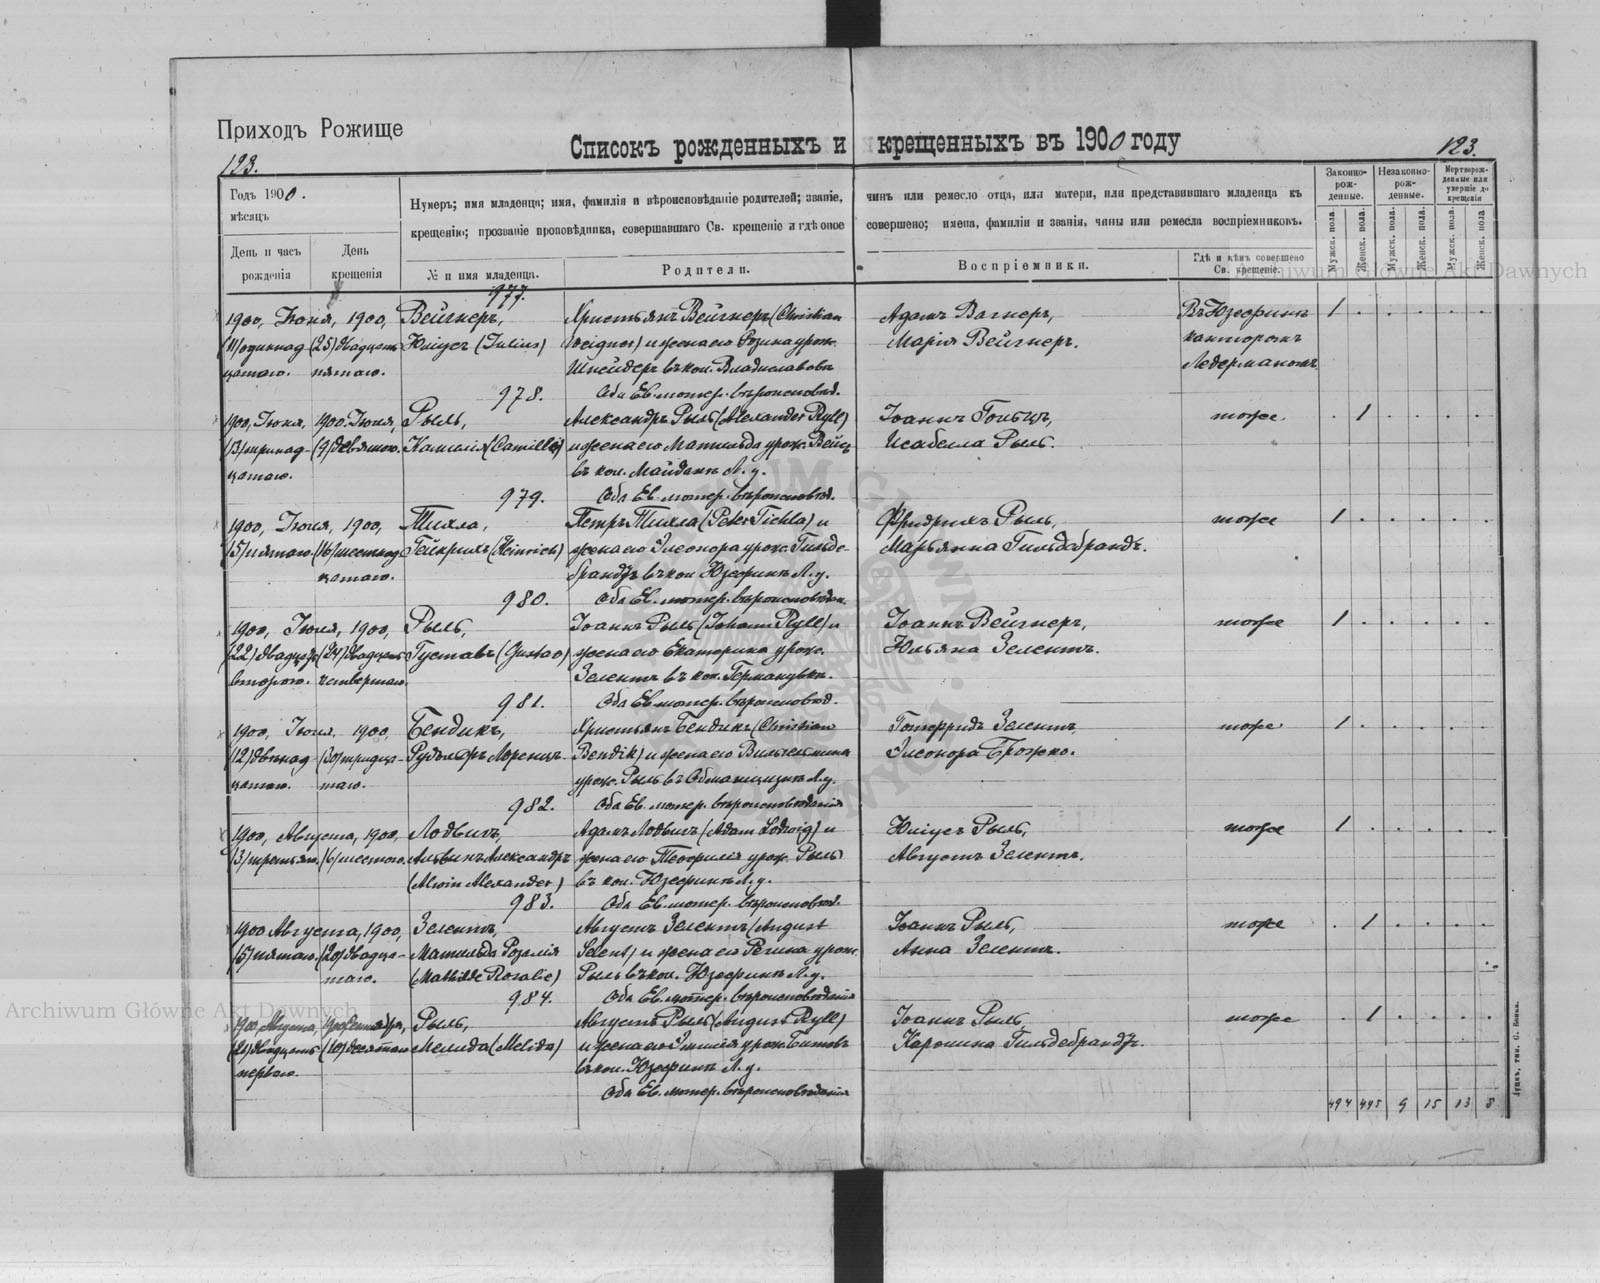 Приходъ Рожище
Списокъ рожденныхъ и крещенныхъ въ 1900 году
123.
123.
Годъ 1900.
мѣсяцъ
День и часъ рожденія
День крещенія
Нумеръ; имя младенца; имя, фамилія и вѣроисповѣданіе родителей; званіе, чинъ или ремесло отца, или матери, или представившаго младенца къ
крещенію; прозваніе проповѣдника, совершавшаго Св. крещеніе и гдѣ оное совершено; имена, фамиліи и званія, чины или ремесла воспріемниковъ.
№ и имя младенца.
Родители.
Воспріемники.
Гдѣ и кѣмъ совершено Св. крещеніе.
Законно-рож-денные.
Незаконно-рож-денные.
Мертворож-денные или умершіе до крещенія
Мужск. пола.
Женск. пола.
Мужск. пола.
Женск. пола.
Мужск. пола.
Женск. пола.
Archiwum Główne Akt Dawnych
977.
1900, Іюня, 1900, Вейгнеръ, Христьянъ Вейгнеръ (Christian Адамъ Вагнеръ, Въ Юзефинъ 1
(11) одиннад (25) двадцать Юліусъ (Julius) Weigner) и жена его Розина урож. Марія Вейгнеръ. канторомъ
цатаго. пятаго. Шнейдеръ въ кол. Владиславовъ Ледерманомъ
978. Оба Ев. лютер. вѣроисповѣд.
1900, Іюня, 1900 Іюля, Рыль, Александръ Рыль (Alexander Ryll) Іоаннъ Гольцъ, тоже 1
(13) тринад (9) девятаго. Камилія (Camilla) и жена его Матильда урож. Вейсъ Исабелла Рыль.
цатаго. въ кол. Майданъ Л. у.
979. Оба Ев. лютер. вѣроисповѣд.
1900, Іюля, 1900, Тихла, Петръ Тихла (Peter Tichla) и Фридрихъ Рыль, тоже 1
(5) пятаго. (16) шестнад Гейнрихъ (Heinrich) жена его Элеонора урож. Гильде- Марьянна Гильдебрандъ.
цатаго. брандъ въ кол. Юзефинъ Л. у.
980. Оба Ев. лютер. вѣроисповѣдан.
1900, Іюля, 1900, Рыль, Іоаннъ Рыль (Johann Ryll) и Іоаннъ Вейгнеръ, тоже 1
(22) двадцать (24) двадцать Густавъ (Gustav) жена его Екатерина урож. Юльяна Зелентъ.
второго. четвертаго. Зелентъ въ кол. Германувкъ.
981. Оба Ев. лютер. вѣроисповѣд.
1900, Іюля, 1900, Бендикъ, Христьянъ Бендикъ (Christian Готфридъ Зелентъ, тоже 1
(12) двѣнад (30) тридца- Рудольфъ Лоренцъ. Bendik) и жена его Вильгельмина Элеонора Брожко.
цатаго. таго. урож. Рыль въ Л. у.
982. Оба Ев. лютер. вѣроисповѣданія
1900, Августа, 1900, Лодвигъ, Адамъ Лодвигъ (Adam Lodwig) и Юліусъ Рыль, тоже 1
(3) третьяго. (6) шестого. Альвинъ Александръ жена его Теофилія урож. Рыль Августъ Зелентъ.
(Alwin Alexander) въ кол. Юзефинъ Л. у.
983. Оба Ев. лютер. вѣроисповѣд.
1900 Августа, 1900, Зелентъ, Августъ Зелентъ (August Іоаннъ Рыль, тоже 1
(5) пятаго. (20) двадца- Матильда Розалія Selent) и жена его Регина урож. Анна Зелентъ.
таго. (Mathilde Rosalie) Рыль въ кол. Юзефинъ Л. у.
984. Оба Ев. лютер. вѣроисповѣданія
1900, Августа, 1900 Сентября, Рыль, Августъ Рыль (August Ryll) Іоаннъ Рыль, тоже 1
(21) двадцать (10) десятаго Мелида (Melida) и жена его Эмилія урож. Битовъ Каролина Гильдебрандъ.
перваго. въ кол. Юзефинъ Л. у.
Оба Ев. лютер. вѣроисповѣданія
494 495 9 15 13 8
Archiwum Główne Akt Dawnych